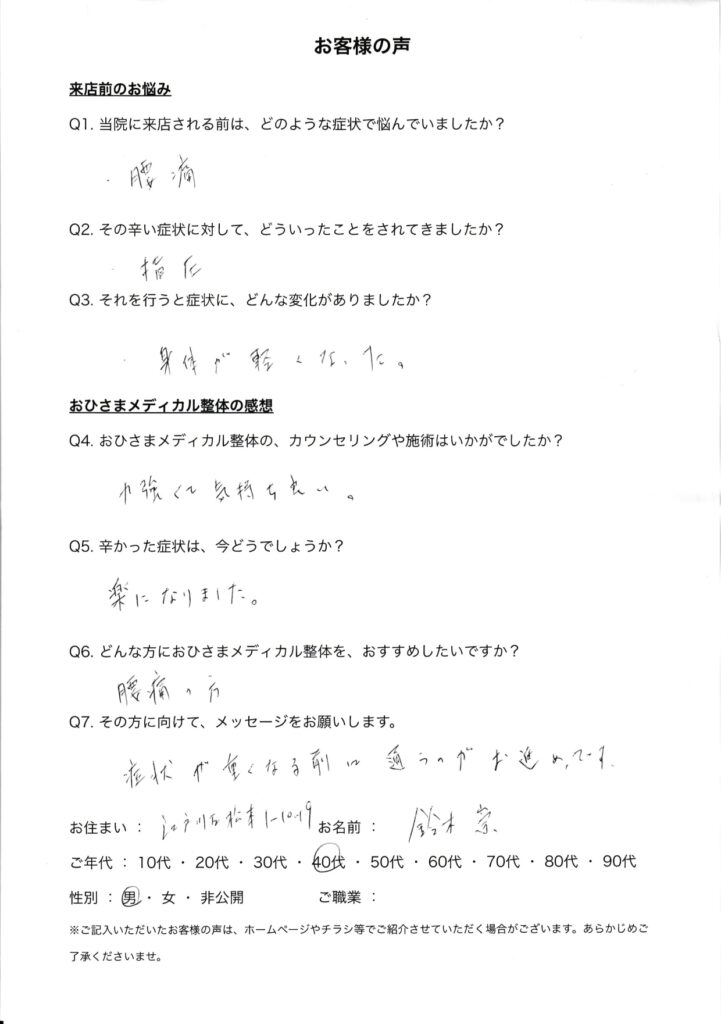 お客様の声
来店前のお悩み
Q1. 当院に来店される前は、どのような症状で悩んでいましたか？
・腰痛
Q2. その辛い症状に対して、どういったことをされてきましたか？
・指圧
Q3. それを行うと症状に、どんな変化がありましたか？
・身体が軽くなった。
おひさまメディカル整体の感想
Q4. おひさまメディカル整体の、カウンセリングや施術はいかがでしたか？
力強くて気持ち良い。
Q5. 辛かった症状は、今どうでしょうか？
楽になりました。
Q6. どんな方におひさまメディカル整体を、おすすめしたいですか？
腰痛の方
Q7. その方に向けて、メッセージをお願いします。
症状が重くなる前に通うのがお進めです。
お住まい： 江戸川区松本1-10-19 お名前： 鈴木 崇
ご年代：10代・20代・30代・40代・50代・60代・70代・80代・90代
性別：男・女・非公開 ご職業：
※ご記入いただいたお客様の声は、ホームページやチラシ等でご紹介させていただく場合がございます。あらかじめご
了承くださいませ。